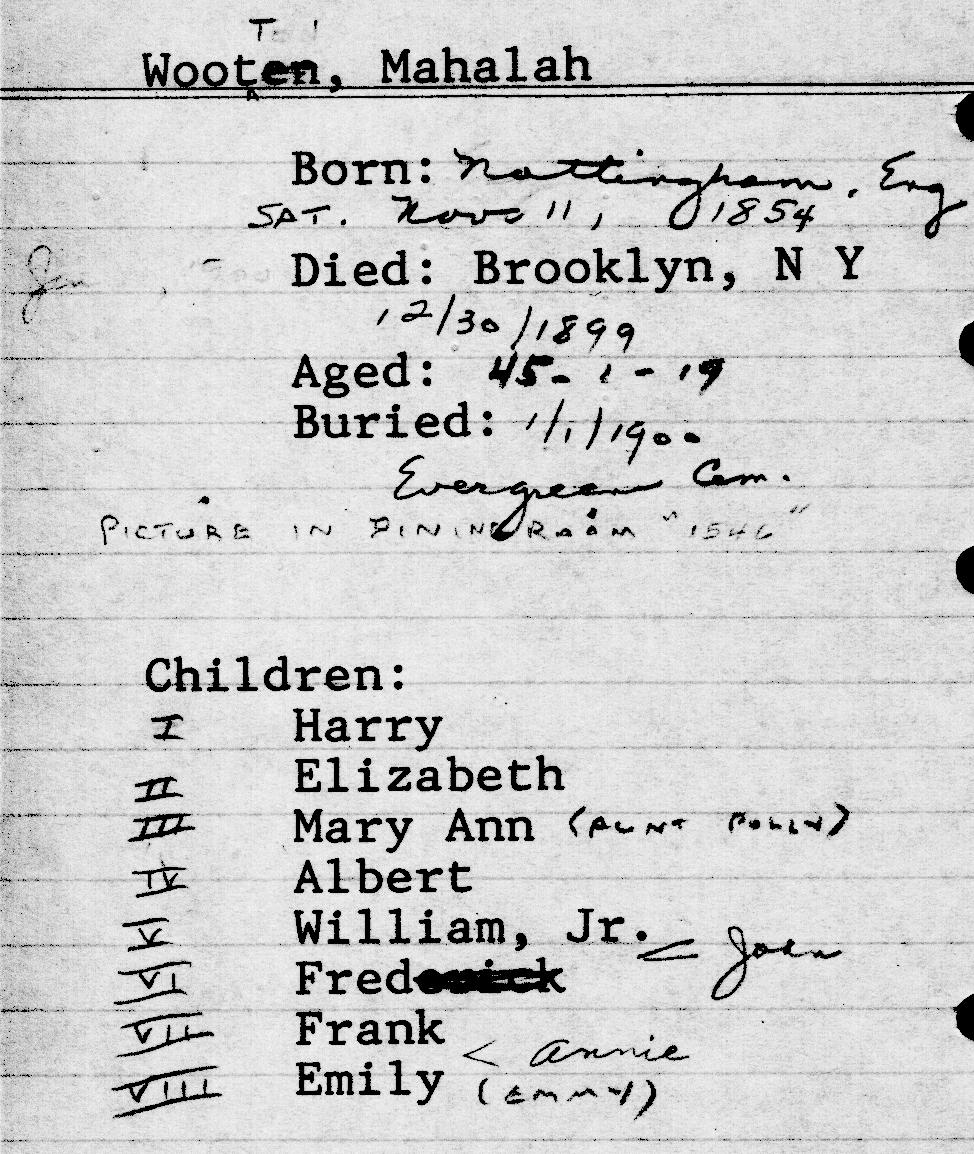 Wooten, Mahalah
Born: Nottingham, Eng
SAT. Nov 11, 1854
Died: Brooklyn, N Y
12/30/1899
Aged: 45-1-19
Buried: 1/1/1900
Evergreen Cem.
PICTURE IN DINING ROOM "1546"
Children:
I Harry
II Elizabeth
III Mary Ann (AUNT POLLY)
IV Albert
V William, Jr.
< John
VI Frederick
VII Frank
< Annie
VIII Emily (EMMY)